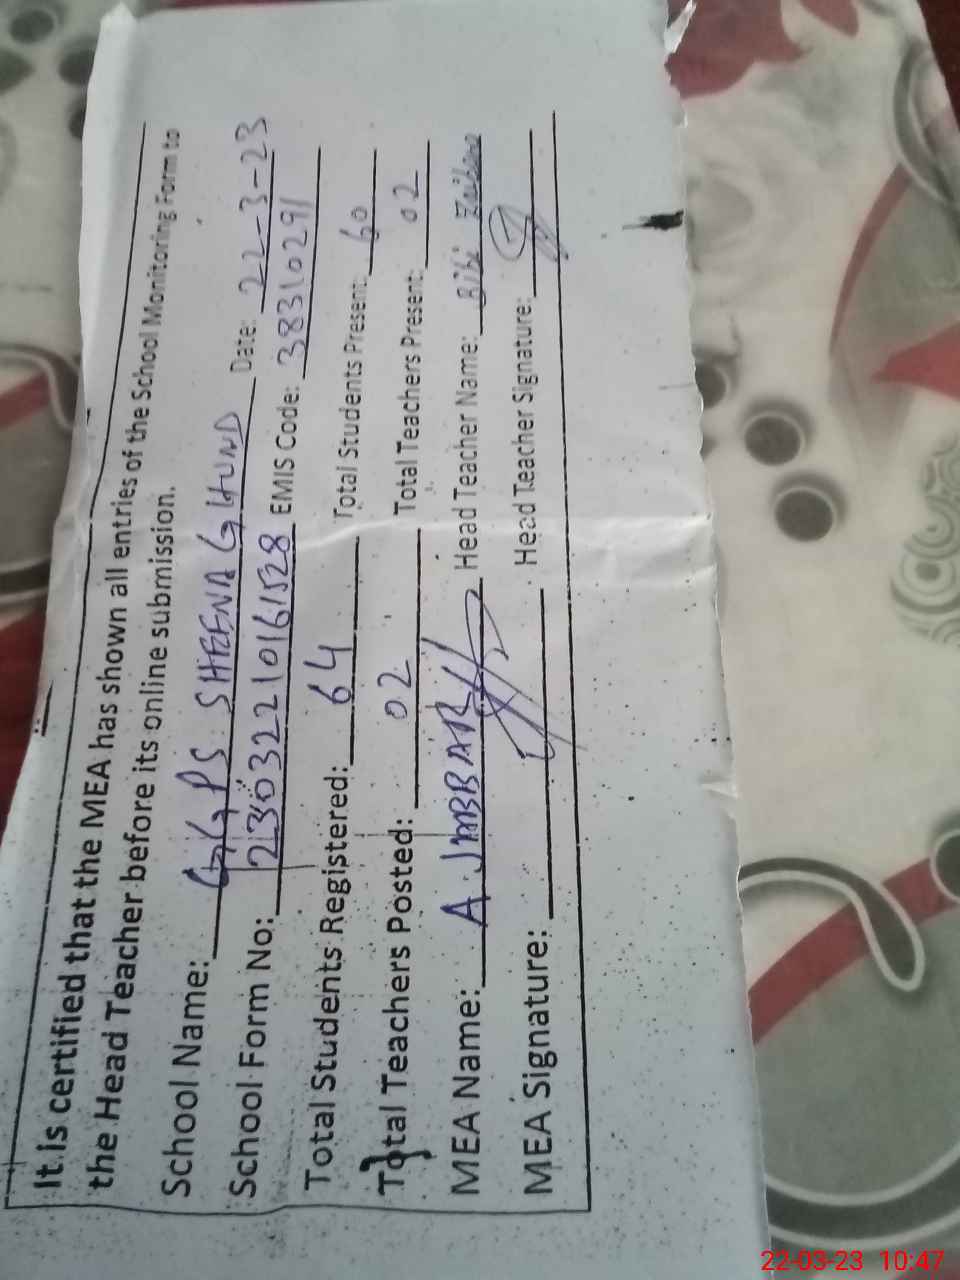 It is certified that the MEA has shown all entries of the School Monitoring Form to
the Head Teacher before its online submission.
School Name: GGPS SHEENA GHUND Date: 22-3-23
School Form No: 23032210161528 EMIS Code: 38310291
Total Students Registered: 64 Total Students Present: 60
Total Teachers Posted: 02 Total Teachers Present: 02
MEA Name: A JABBAR Head Teacher Name: Bibi
MEA Signature: Head Teacher Signature:
22-03-23 10:47